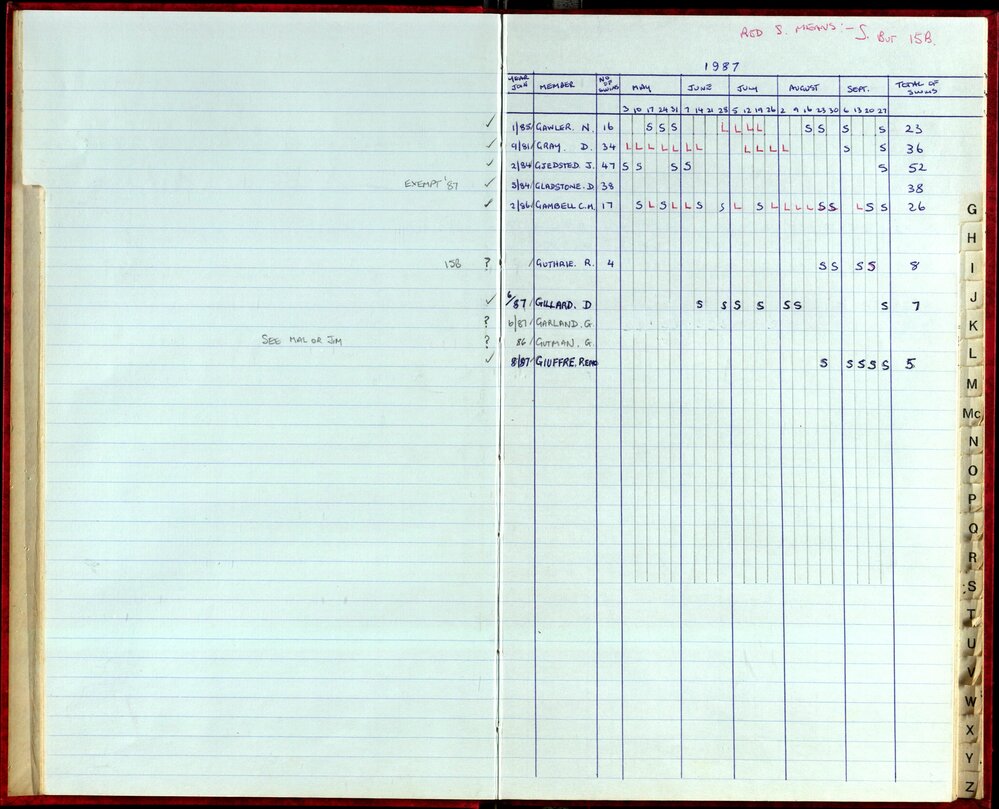 RED S. MEANS :- S. BUT 15B.
1987
YEAR JOIN MEMBER NO. OF SWIMS MAY JUNE JULY AUGUST SEPT. TOTAL OF SWIMS
3 10 17 24 31 7 14 21 28 5 12 19 26 2 9 16 23 30 6 13 20 27
✓ 1/85 GAWLER. N. 16 S S S L L L L S S S S 23
✓ 9/81 GRAY. D. 34 L L L L L L L L L L L S S 36
✓ 2/84 GJEDSTED. J. 47 S S S S S 52
EXEMPT '87 ✓ 3/84 GLADSTONE. D 38 38
✓ 2/86 GAMBELL C.M. 17 S L S L L S S L S L L L L S S L S S 26
15B ? / GUTHRIE. R. 4 S S S S 8
✓ 6/87/ GILLARD. D S S S S S S S 7
? 6/87/ GARLAND. G.
SEE MAL OR JIM ? 86/ GUTMAN. G.
✓ 8/87/ GIUFFRE. REMO S S S S S 5
G
H
I
J
K
L
M
Mc
N
O
P
Q
R
S
T
U
V
W
X
Y
Z